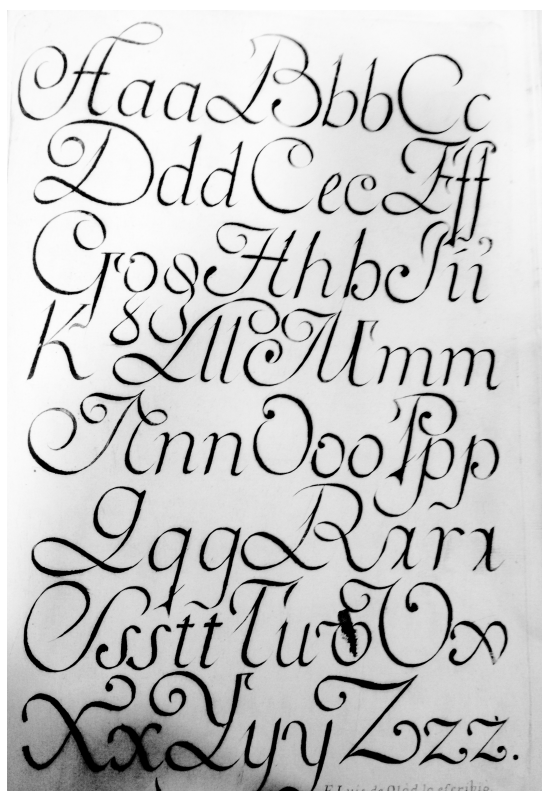 AaaBbbCc
DddEeeFff
GggHhhIii
K LllMmm
NnnOooPpp
QqqRrrr
SssttTu
XxxYyyZzz.
F. Luis de Olód lo escribio.